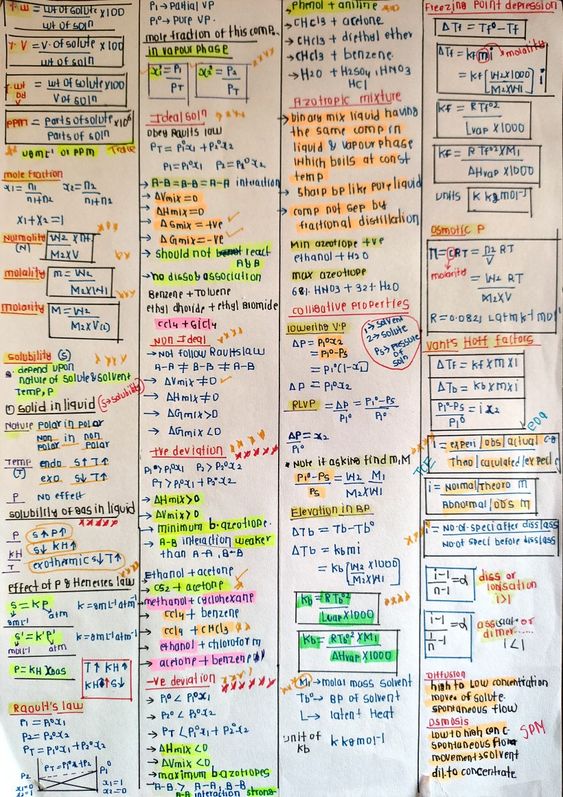 wt of soln
v.v = v.of solute x100
wt of soln
wt of solute x100
V of soln
PPM = parts of solute x10⁶
Parts of soln
mole fraction
x1 = n1 x2 = n2
n1+n2 n1+n2
x1+x2=1
Normality (N)
M2XV
molality m = W2
M2XW1
molarity M = W2
M2XV(L)
solubility (s)
depend upon
nature of solute & solvent
Temp, P
① solid in liquid
Nature Polar in Polar
Non in non
Polar Polar
Temp endo S↑ T↑
(T) exo S↓ T↑
P No effect
solubility of Gas in liquid
P S↑ P↑
KH S↓ KH↑
T exothermic S↓ T↑
effect of P & Henries law
S = KP
atm
K = gmL⁻¹atm⁻¹
S' = K'P'
mol L⁻¹ atm
P = KH XGas
T↑ KH↑
KH↑ S↓
Raoult's law
P1 = P1⁰x1
P2 = P2⁰x2
PT = P1⁰x1 + P2⁰x2
P2 P1⁰
x1=0 x1=1
x2=1 x2=0
P1 → partial VP
P1⁰ → Pure VP.
mole fraction of this comp.
in vapour phase
x1 = P1 x2 = P2
PT PT
Ideal soln
obey Raults law
PT = P1⁰x1 + P2⁰x2
P1 = P1⁰x1 P2 = P2⁰x2
→ A-B = B-B = A-A interaction
→ ΔVmix = 0
→ ΔHmix = 0
→ ΔSmix = +ve
→ ΔGmix = -ve
→ should not react
A & B
→ no dissob association
Benzene + Toluene
ethyl chloride + ethyl Bromide
CCl4 + SiCl4
Non Ideal
→ Not follow Raults law
A-A ≠ B-B ≠ A-B
→ ΔVmix ≠ 0
→ ΔHmix ≠ 0
→ ΔGmix > 0
→ ΔGmix < 0
+ve deviation
P1 > P1⁰x1 P2 > P2⁰x2
PT > P1⁰x1 + P2⁰x2
→ ΔHmix > 0
→ ΔVmix > 0
→ minimum b.azeotrope
→ A-B interaction weaker
than A-A, B-B
Ethanol + acetone
→ CS2 + acetone
methanol + cyclohexane
→ CCl4 + benzene
→ CCl4 + CHCl3
→ ethanol + chloroform
→ acetone + benzene
-ve deviation
→ P1⁰ < P1⁰x1
→ P2⁰ < P2⁰x2
→ PT < P1⁰x1 + P2⁰x2
→ ΔHmix < 0
→ ΔVmix < 0
→ maximum b.azotropes
→ A-B > A-A, B-B
A-A interaction strong
→ Phenol + aniline
→ CHCl3 + acetone
→ CHCl3 + diethyl ether
→ CHCl3 + benzene
→ H2O + H2SO4, HNO3
HCl
Azotropic mixture
→ binary mix liquid having
the same comp in
liquid & vapour phase
which boils at const
temp
→ sharp bp like pure liquid
→ comp not sep by
fractional distillation
min azeotrope +ve
ethanol + H2O
max azeotope
68% HNO3 + 32% H2O
colligative properties
lowering V.P
ΔP = P1⁰x2
= P1⁰-Ps
= P1⁰(1-x1)
ΔP = P1⁰x2
1 → solvent
2 → solute
Ps → Pressure
of
soln
RLVP = ΔP = P1⁰-Ps
P1⁰ P1⁰
ΔP = x2
P1⁰
* Note if asking find m, M
P1⁰-Ps = W2 M1
Ps M2XW1
Elevation in BP
ΔTb = Tb-Tb⁰
ΔTb = kbmi
= kb[W2X1000]
M2XW1
kb = RTb⁰²
LvapX1000
kb = RTb⁰²XM1
ΔHvapX1000
M1 → molar mass solvent
Tb⁰ → BP of solvent
L → latent Heat
unit of
kb
k kgmol⁻¹
Freezing Point depression
ΔTf = Tf⁰-Tf
ΔTf = kf mi
molality
= kf[W2X1000] i
M2XW1
kf = RTf⁰²
LvapX1000
kf = RTf⁰²XM1
ΔHvapX1000
units k kgmol⁻¹
Osmotic P
Π = CRT = n2 RT
V
molarity
= W2 RT
M2XV
R = 0.0821 Latm k⁻¹mol⁻¹
Vants Hoff factors
ΔTf = kf X m X i
ΔTb = kb X m X i
P1⁰-Ps = i x2
P1⁰
i = experi/obs/actual C.P
Theo/calculated/expel c
i = Normal/Theoro m
Abnormal/obs m
i = No. of speci after disslass
No of speci before disslass
i-1 = α
n-1
diss or
ionisation
i>1
i-1 = α
1/n -1
assosiat or
dimer.....
i<1
Diffusion
high to Low concentration
moves of solute.
spontaneous flow
Osmosis
SPM
low to high conc
spontaneous flow
movement solvent
dil. to concentrate